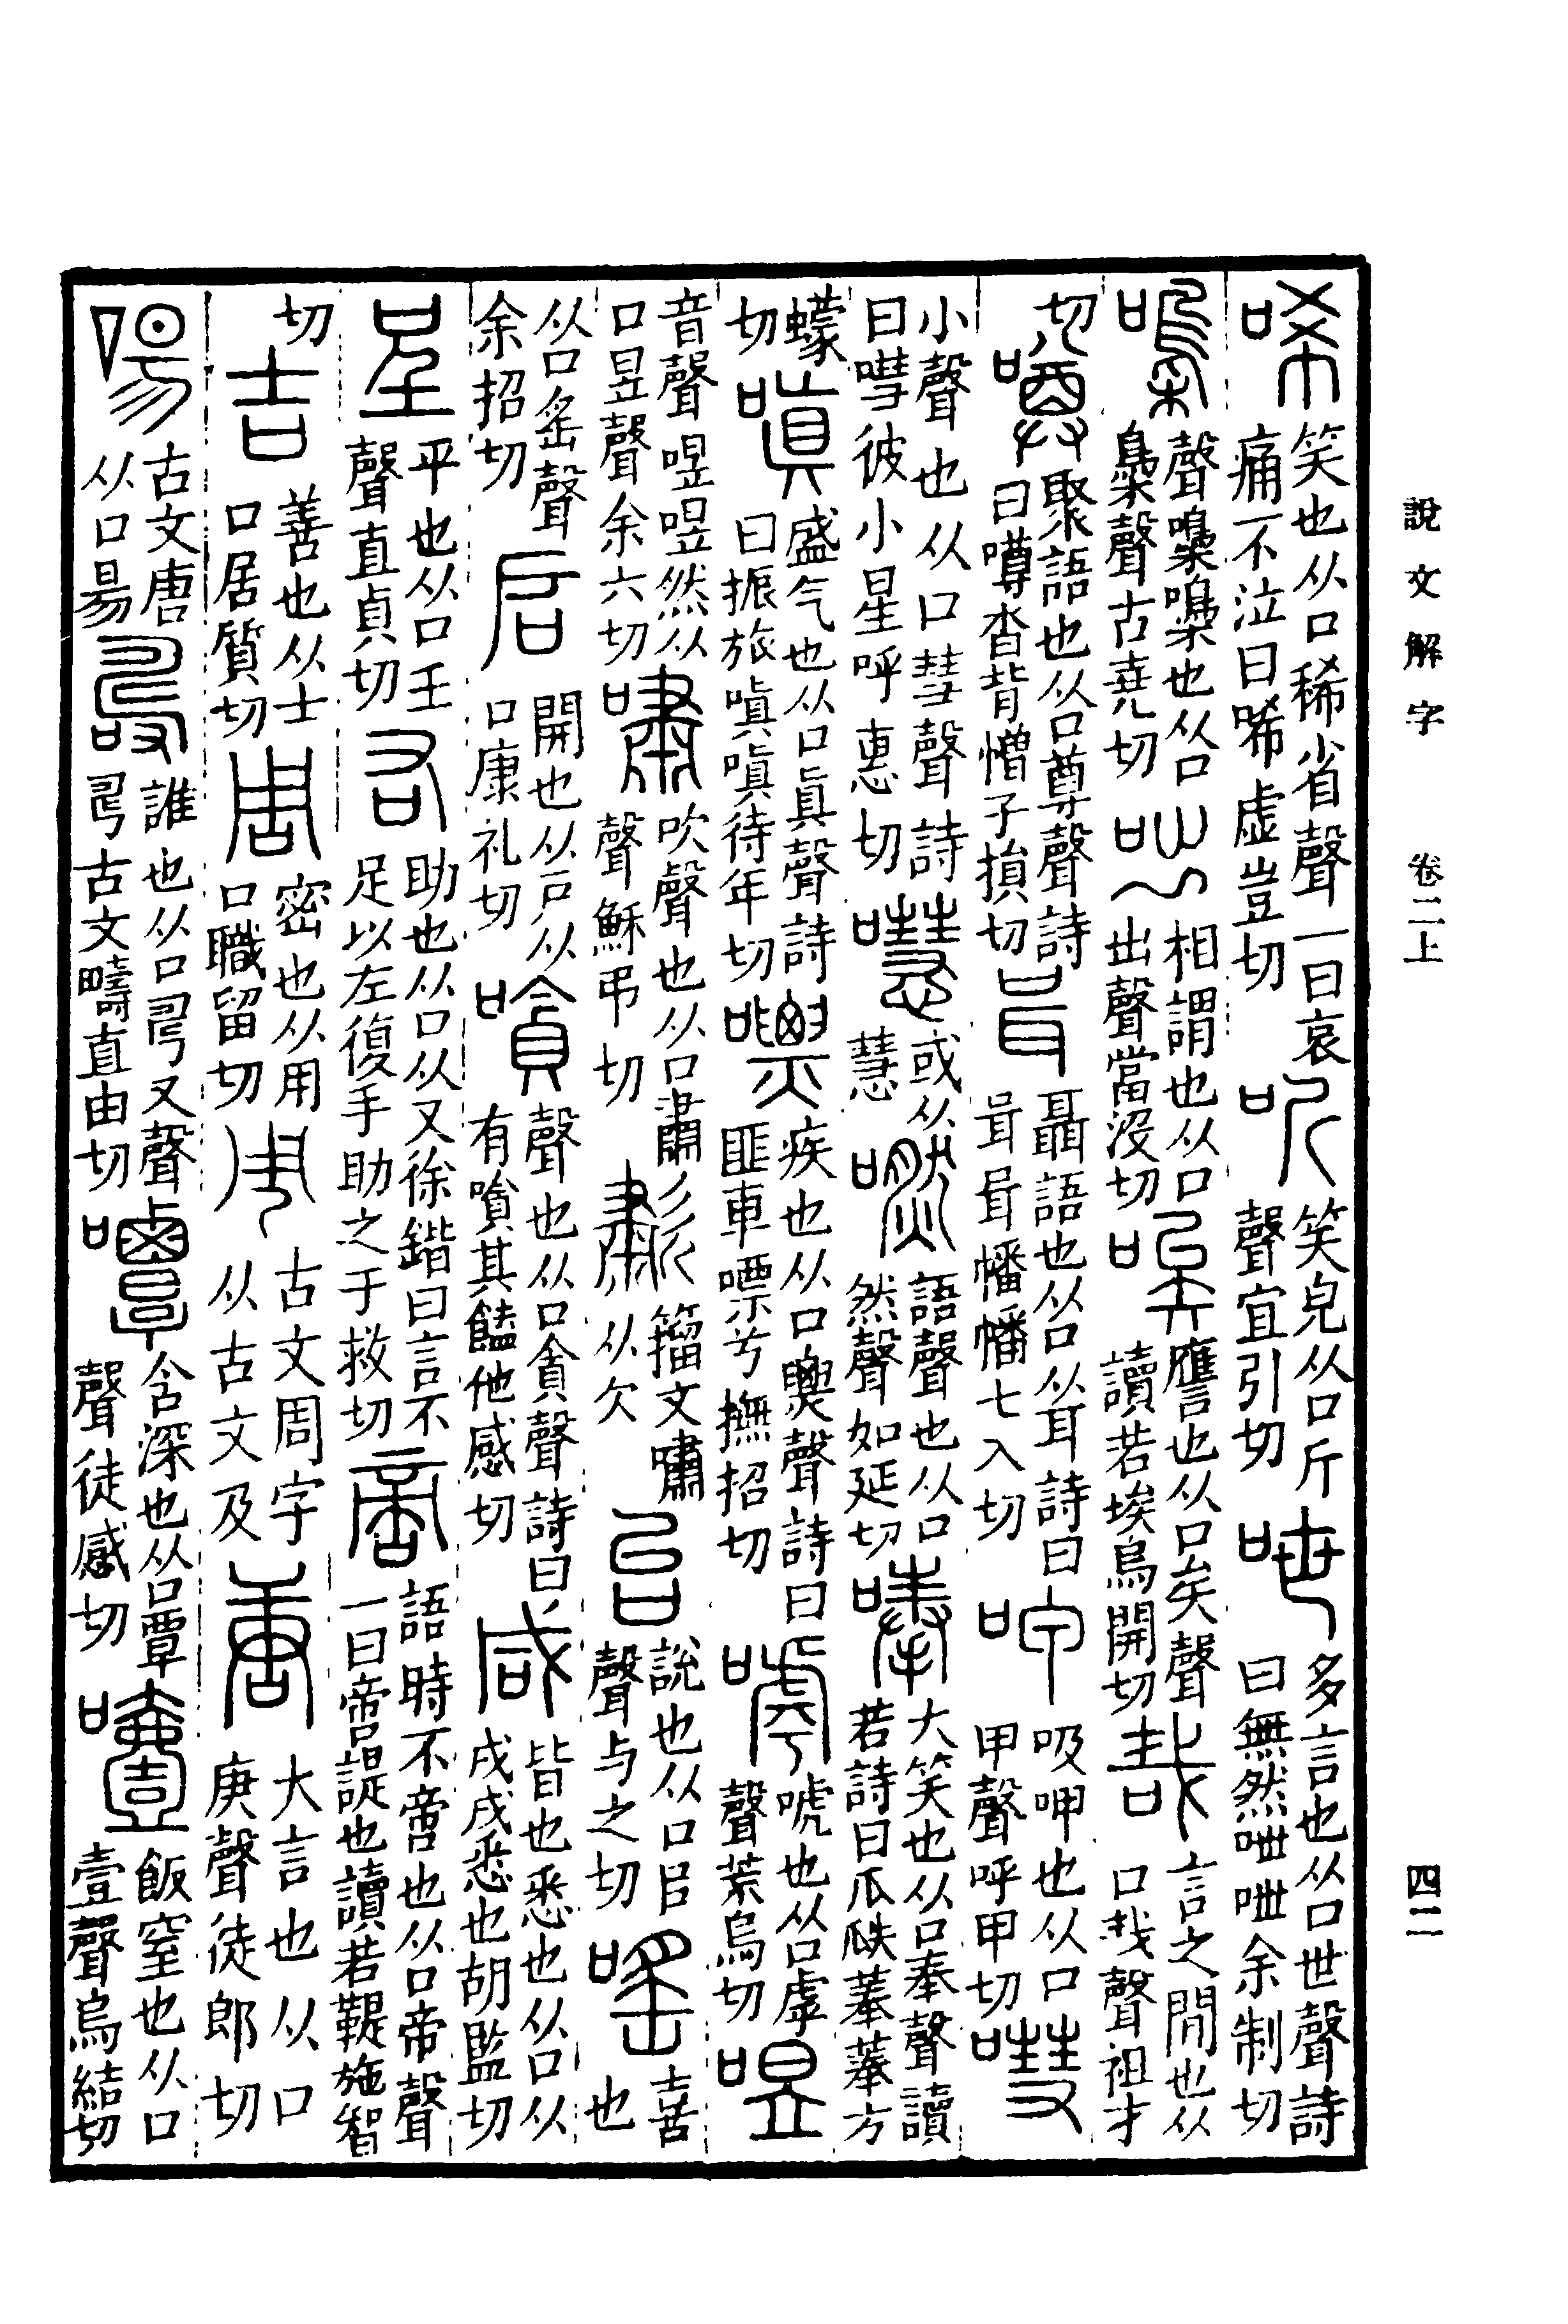 說文解字 卷二上 四二
唏笑也从口稀省聲一曰哀痛不泣曰唏虛豈切听笑皃从口斤聲宜引切呭多言也从口世聲詩曰無然呭呭余制切
嘄聲嘄嘄也从口梟聲古堯切咄相謂也从口出聲當沒切唉譍也从口矣聲讀若埃烏開切哉言之閒也从口𢦏聲祖才
切噂聚語也从口尊聲詩曰噂沓背憎子損切咠聶語也从口从耳詩曰咠咠幡幡七入切呷吸呷也从口甲聲呼甲切嘒
小聲也从口彗聲詩曰嘒彼小星呼惠切嚖或从慧嘫語聲也从口然聲如延切唪大笑也从口奉聲讀若詩曰瓜瓞菶菶方
蠓切嗔盛气也从口眞聲詩曰振旅嗔嗔待年切嘌疾也从口𤐫聲詩曰匪車嘌兮撫招切嘑唬也从口虖聲荒烏切喅
音聲喅喅然从口昱聲余六切嘯吹聲也从口肅聲穌弔切歗籒文嘯从欠台說也从口㠯聲与之切嗂喜也
从口䍃聲余招切启開也从戶从口康礼切嗿聲也从口貪聲詩曰有嗿其饁他感切咸皆也悉也从口从戌戌悉也胡監切
呈平也从口𡈼聲直貞切右助也从口从又徐鍇曰言不足以左復手助之于救切啻語時不啻也从口帝聲一曰啻諟也讀若鞮施智
切吉善也从士口居質切周密也从用口職留切古文周字从古文及唐大言也从口庚聲徒郎切
啺古文唐从口昜𠷎誰也从口𢏚又聲𢏚古文疇直由切嘾含深也从口覃聲徒感切噎飯窒也从口壹聲烏結切